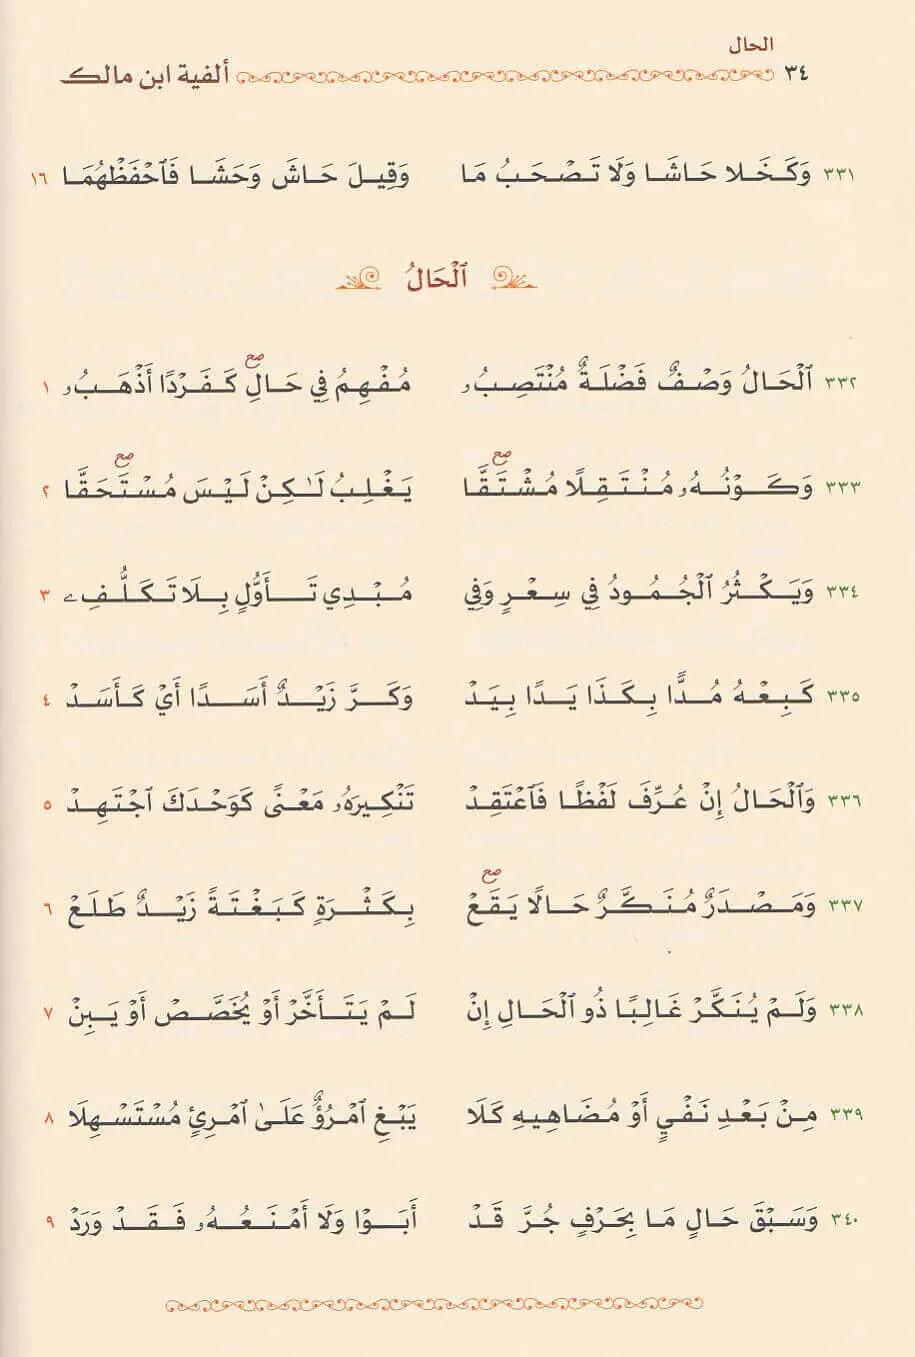 الحال
٣٤ ألفية ابن مالك
٣٣١ وَكَخَلا حَاشَا وَلَا تَصْحَبُ مَا وَقِيلَ حَاشَ وَحَشَا فَٱحْفَظْهُمَا ١٦
ٱلْحَالُ
٣٣٢ ٱلْحَالُ وَصْفٌ فَضْلَةٌ مُنْتَصِبُۥ مُفْهِمُ فِي حَالِ كَفَرْدًا أَذْهَبُۥ ١
صح
٣٣٣ وَكَوْنُهُۥ مُنْتَقِلًا مُشْتَقَّا يَغْلِبُ لَـٰكِنْ لَيْسَ مُسْتَحَقَّا ٢
صح صح
٣٣٤ وَيَكْثُرُ ٱلْجُمُودُ فِي سِعْرٍ وَفِي مُبْدِي تَأَوُّلٍ بِلَا تَكَلُّفِۦ ٣
٣٣٥ كَبِعْهُ مُدًّا بِكَذَا يَدًا بِيَدْ وَكَرَّ زَيْدٌ أَسَدًا أَيْ كَأَسَدْ ٤
٣٣٦ وَٱلْحَالُ إِنْ عُرِّفَ لَفْظًا فَٱعْتَقِدْ تَنْكِيرَهُۥ مَعْنًى كَوَحْدَكَ ٱجْتَهِدْ ٥
٣٣٧ وَمَصْدَرٌ مُنَكَّرٌ حَالًا يَقَعْ بِكَثْرَةٍ كَبَغْتَةً زَيْدٌ طَلَعْ ٦
صح
٣٣٨ وَلَمْ يُنَكَّرْ غَالِبًا ذُو ٱلْحَالِ إِنْ لَمْ يَتَأَخَّرْ أَوْ يُخَصَّصْ أَوْ يَبِنْ ٧
٣٣٩ مِنْ بَعْدِ نَفْيٍ أَوْ مُضَاهِيهِ كَلَا يَبْغِ ٱمْرُؤٌ عَلَىٰ ٱمْرِئٍ مُسْتَسْهِلَا ٨
٣٤٠ وَسَبْقَ حَالٍ مَا بِحَرْفٍ جُرَّ قَدْ أَبَوْا وَلَا أَمْنَعُهُۥ فَقَدْ وَرَدْ ٩